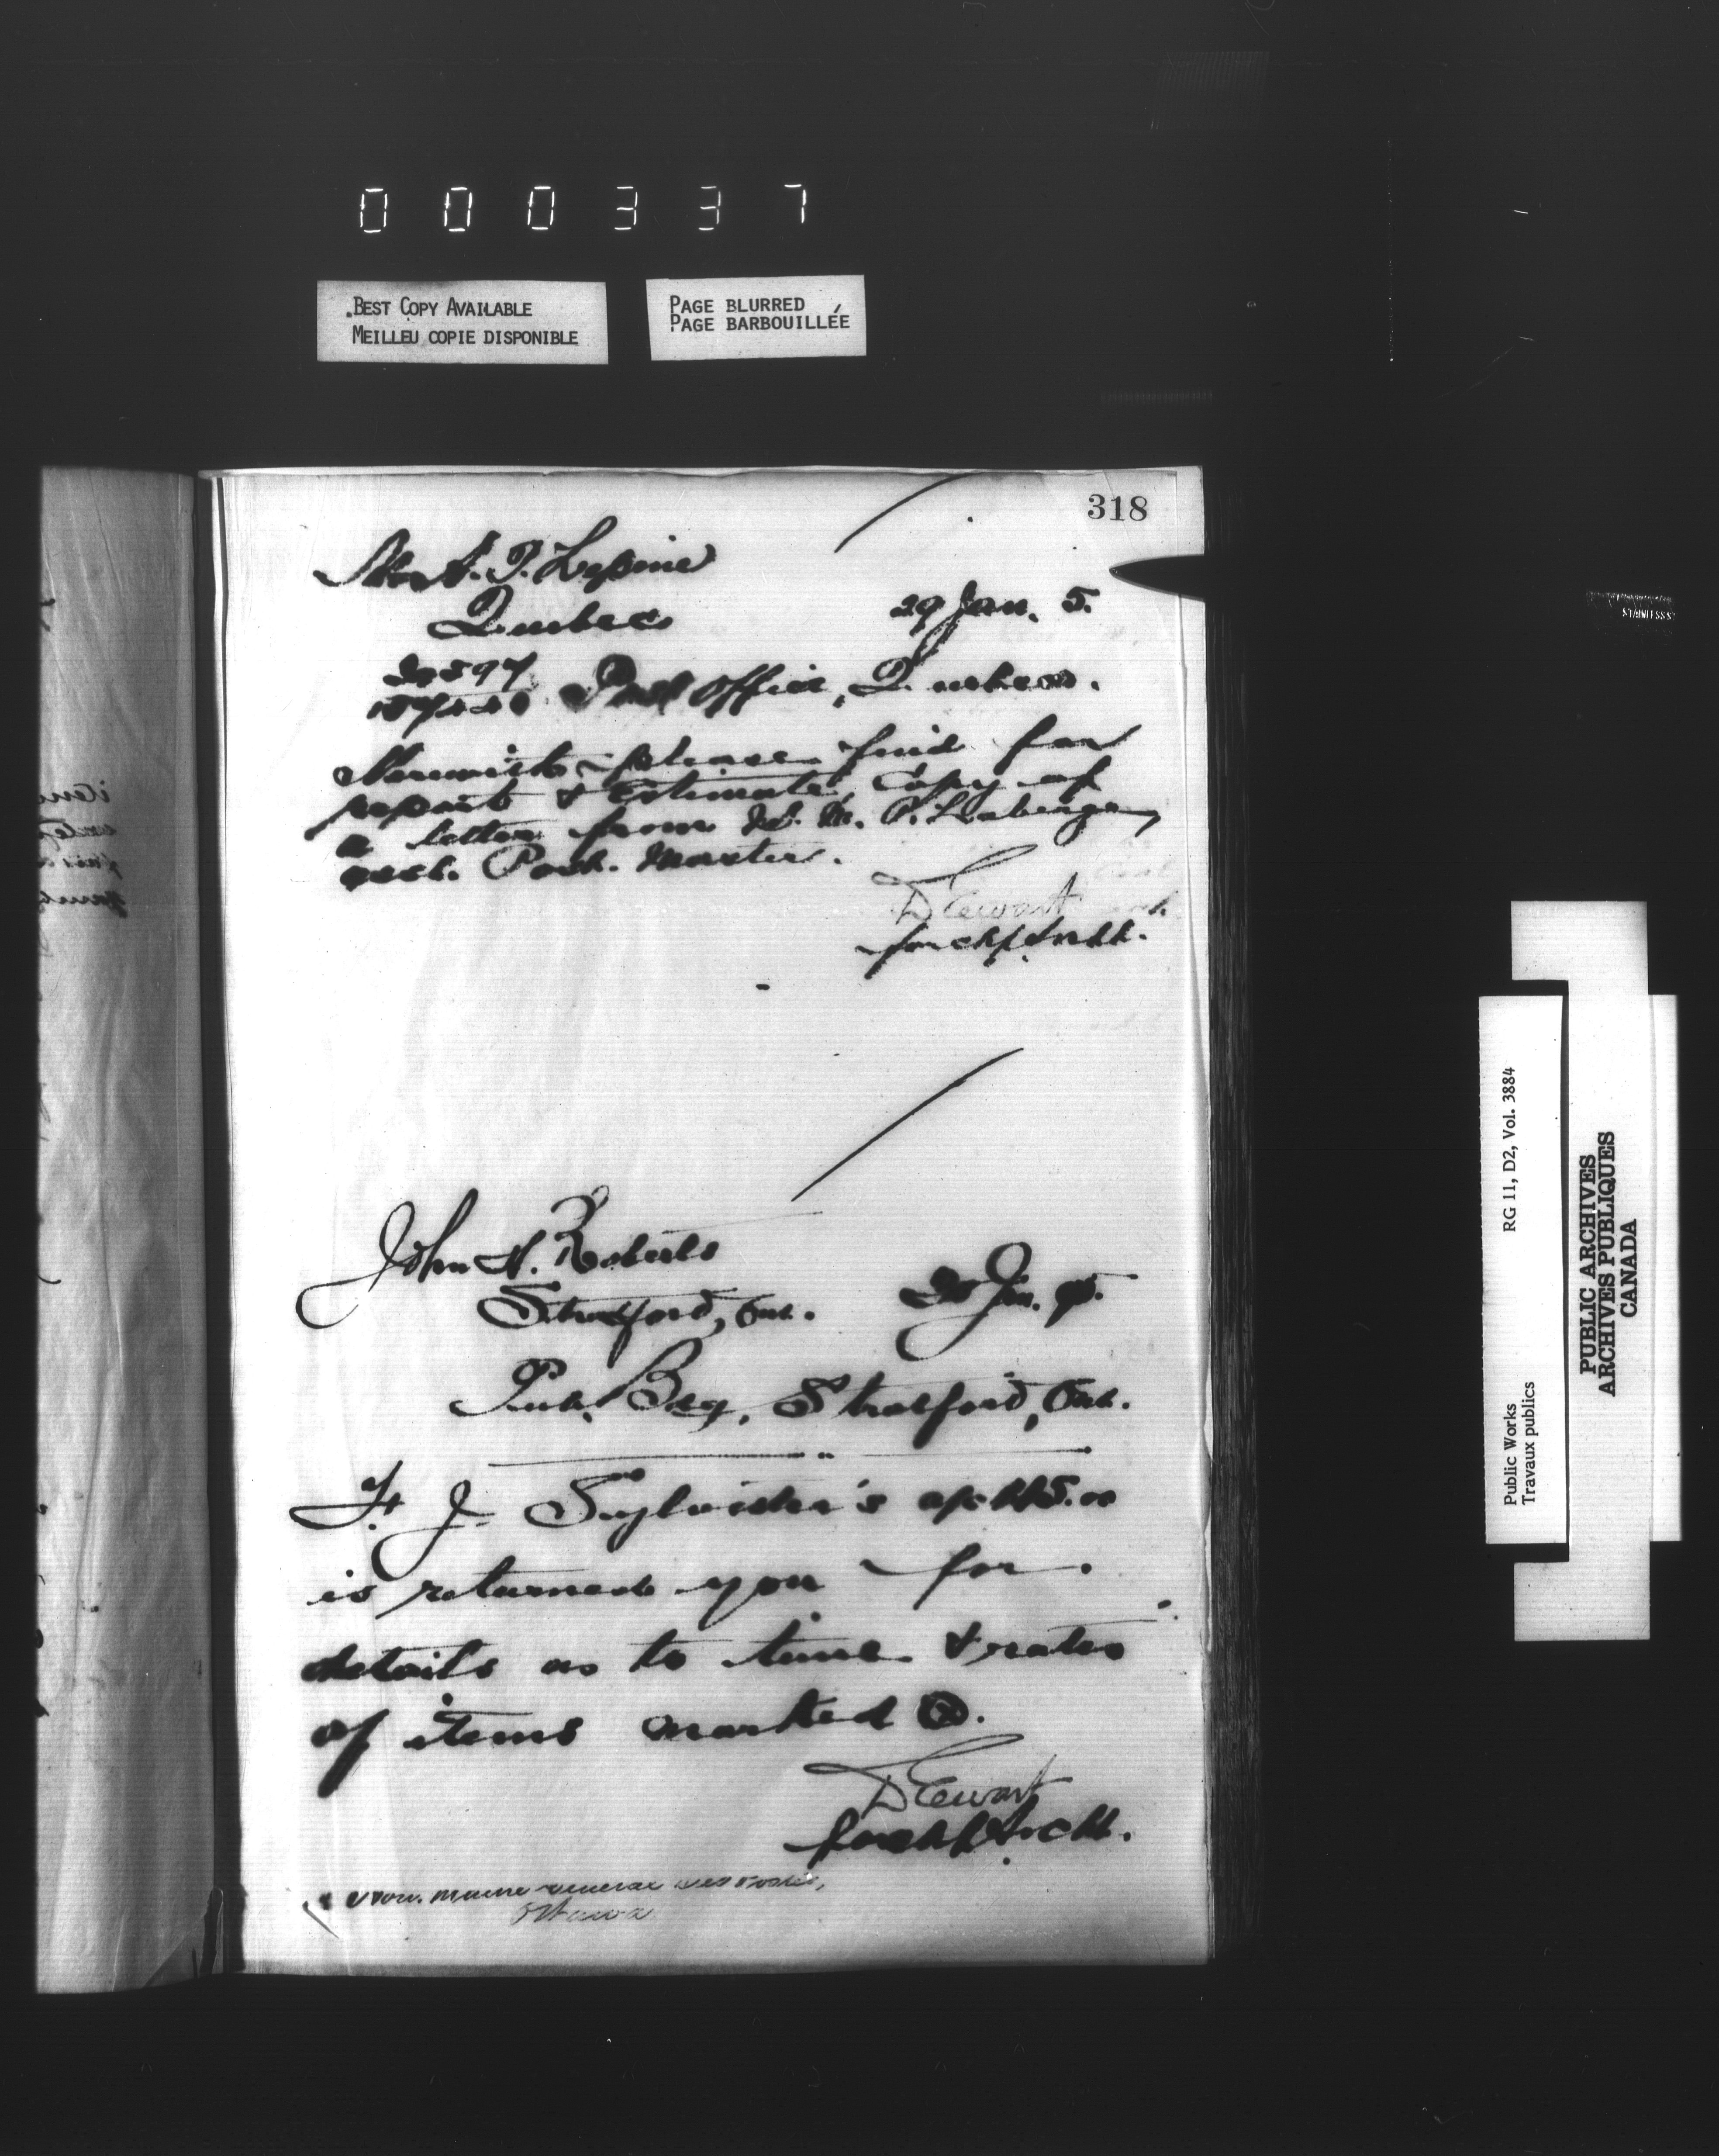 000337
BEST COPY AVAILABLE
MEILLEU COPIE DISPONIBLE
PAGE BLURRED
PAGE BARBOUILLÉE
318
Mr A. P. Lepine
Quebec 29 Jan. 5.
Post Office, Quebec.
Herewith please find for
report & Estimate, Copy of
a letter from P. Laberge,
asst. Post. Master.
D Ewart
for chf Archt.
John H. Roberts
Stratford, Ont. Jan.
Pub. Bdg, Stratford, Ont.
F. J. Sylvester's a/c
is returned you for
details as to time & rates
of items marked ⊗.
D Ewart
for chf Archt.
Ottawa
Public Works RG 11, D2, Vol. 3884
Travaux publics
PUBLIC ARCHIVES
ARCHIVES PUBLIQUES
CANADA